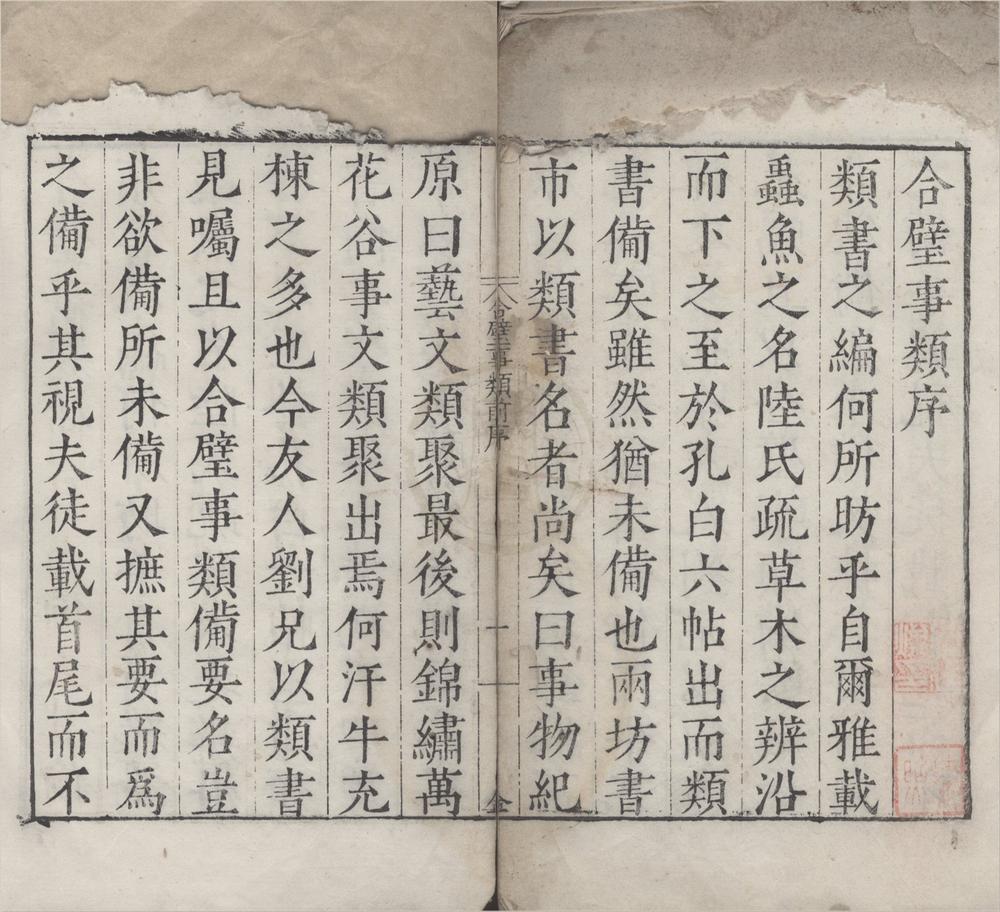 合璧事類序
類書之編何所昉乎自爾雅載
蟲魚之名陸氏疏草木之辨沿
而下之至於孔白六帖出而類
書備矣雖然猶未備也兩坊書
市以類書名者尚矣曰事物紀
合璧事類前序
一
全
原曰藝文類聚最後則錦繡萬
花谷事文類聚出焉何汗牛充
棟之多也今友人劉兄以類書
見囑且以合璧事類備要名豈
非欲備所未備又摭其要而爲
之備乎其視夫徒載首尾而不